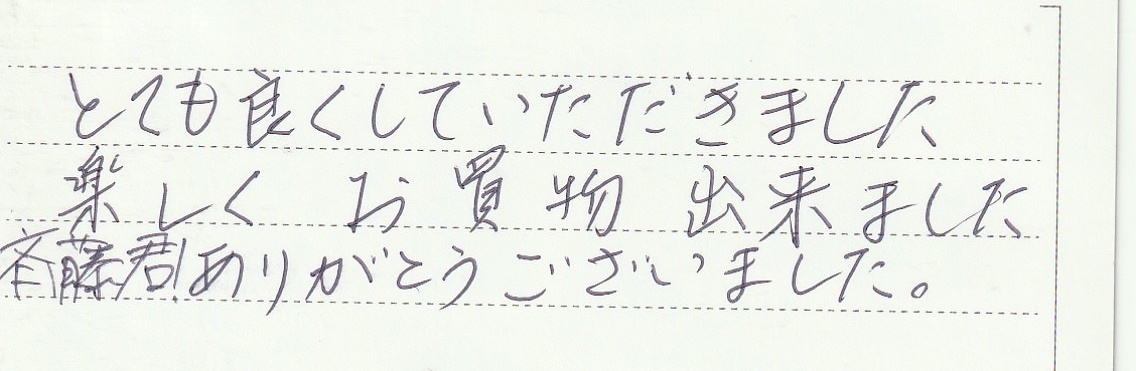 とても良くしていただきました
楽しくお買物出来ました
斉藤君!ありがとうございました。